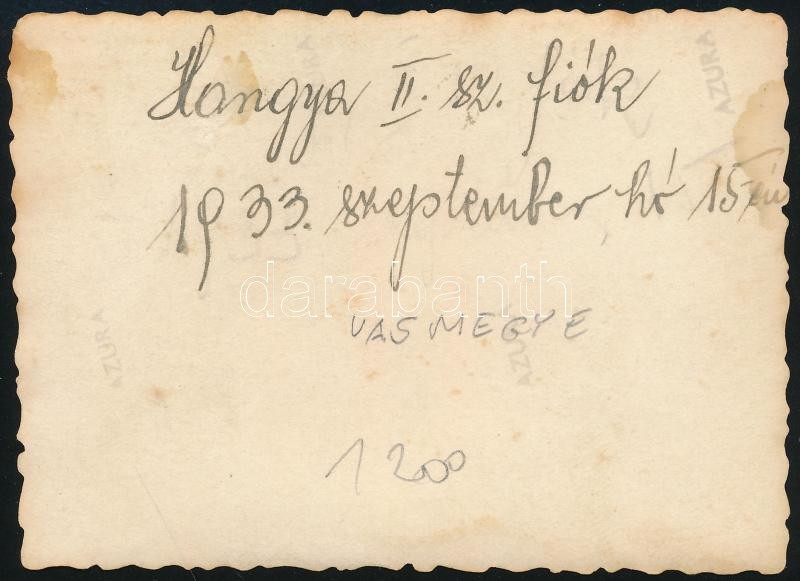 Hangya II. sz. fiók
1933. szeptember hó 15-én
darabanth
VASMEGYE
1200
AZURA
AZURA
AZURA
AZURA